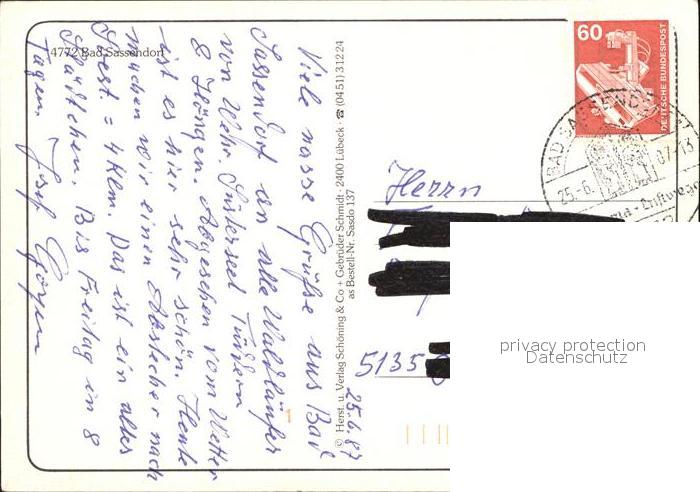 4772 Bad Sassendorf
25.6.87
Viele nasse Grüße aus Bad
Sassendorf an alle Waldläufer
von Wehr. Süsterseel Tüddern
& Höngen. Abgesehen vom Wetter
ist es hier sehr schön. Heute
machen wir einen Abstecher nach
Soest = 4 Klm. Das ist ein altes
Städtchen. Bis Freitag in 8
Tagen. Josef
© Herst. u. Verlag Schöning & Co + Gebrüder Schmidt · 2400 Lübeck · ☎ (0451) 31224
as Bestell-Nr. Sasdo 137
60
DEUTSCHE BUNDESPOST
BAD SASSENDORF
25.-6. 07-13
Herrn
5135
privacy protection
Datenschutz